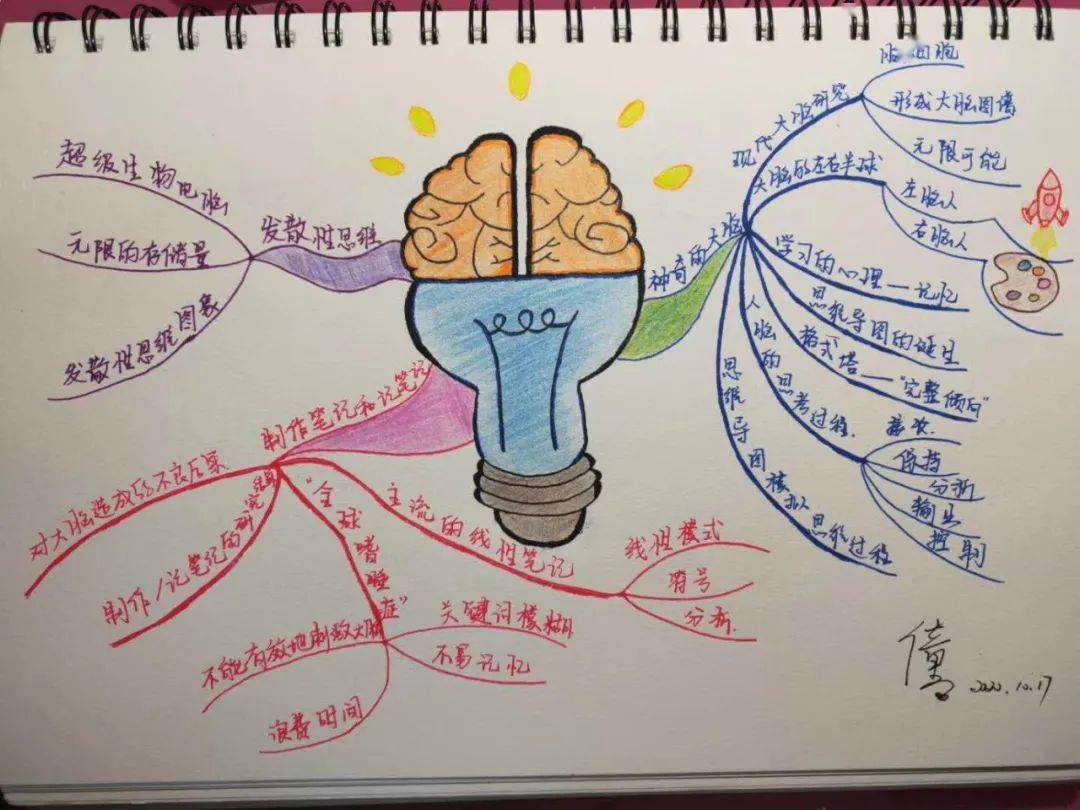 神奇的大脑
现代大脑研究
脑细胞
形成大脑图谱
无限可能
大脑的左右半球
左脑人
右脑人
学习的心理—记忆
思维导图的诞生
格式塔—"完整倾向"
人脑的思考过程.
接收.
保持
分析
输出
控制
思维导图模拟思维过程
制作笔记和记笔记
主流的线性笔记
线性模式
符号
分析.
"全球嗜睡症"
关键词模糊
不易记忆
不能有效地刺激大脑
浪费时间
制作/记笔记的研究结果
对大脑造成的不良后果
发散性思维
超级生物电脑
无限的存储量
发散性思维图象
2020.10.17